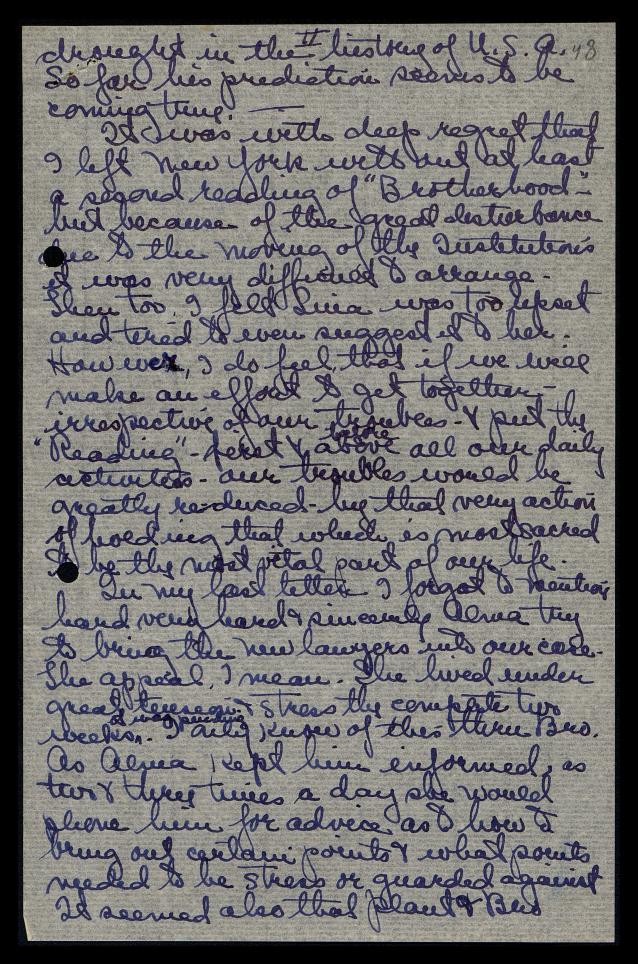 II 48
drought in the history of U.S.A.
So far his prediction seems to be
coming true. —
It was with deep regret that
I left New York without at least
a second reading of "Brotherhood"-
but because of the great disturbance
due to the moving of the Institutions
it was very difficult to arrange -
Then too, I felt Sina was too upset
and tired to even suggest it to her.
However, I do feel, that if we will
make an effort to get together, -
irrespective of our troubles - & put the
before
"Reading" - first & above all our daily
activities - our troubles would be
greatly reduced - by that very action
of holding that which is most sacred
to be the most vital part of our life.
In my last letter I forgot to mention
hard very hard & sincerely Alma try
to bring the new lawyers into our case -
the appeal, I mean. She lived under
great tension & stress the complete two
I was pending
weeks. I only know of this thru Bro.
As Alma kept him informed, as
two & three times a day she would
phone him for advice as to how to
bring out certain points & what points
needed to be stress or guarded against
It seemed also that Plaut & Bro